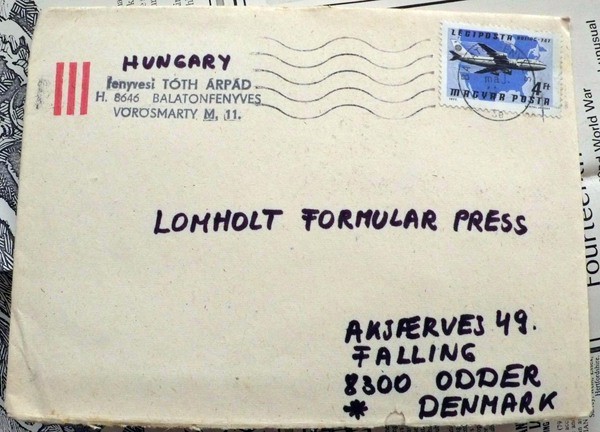 HUNGARY
fenyvesi TÓTH ÁRPÁD
H. 8646 BALATONFENYVES
VÖRÖSMARTY M. 11.
LÉGIPOSTA
4 Ft
MAGYAR POSTA
LOMHOLT FORMULAR PRESS
AKSJÆRVEJ 49.
FALLING
8300 ODDER
* DENMARK
Fourteenth
d World War
unusual
Hertfordshire,